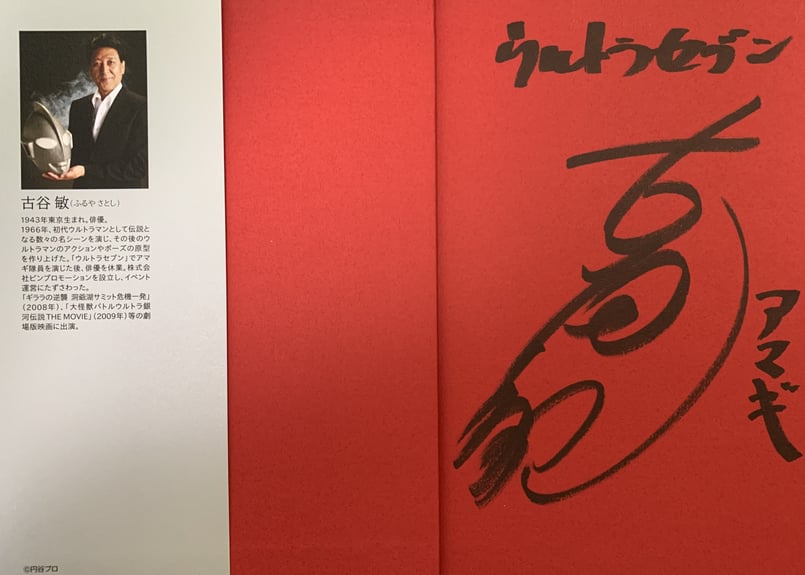 古谷 敏(ふるや さとし)
1943年東京生まれ。俳優。
1966年、初代ウルトラマンとして伝説と
なる数々の名シーンを演じ、その後のウ
ルトラマンのアクションやポーズの原型
を作り上げた。「ウルトラセブン」でア
マギ隊員を演じた後、俳優を休業。株式会
社ビンプロモーションを設立し、イベント
運営にたずさわった。
「ギララの逆襲 洞爺湖サミット危機一発」
(2008年)、「大怪獣バトルウルトラ銀
河伝説 THE MOVIE」(2009年)等の劇
場版映画に出演。
©円谷プロ
ウルトラセブン
アマギ